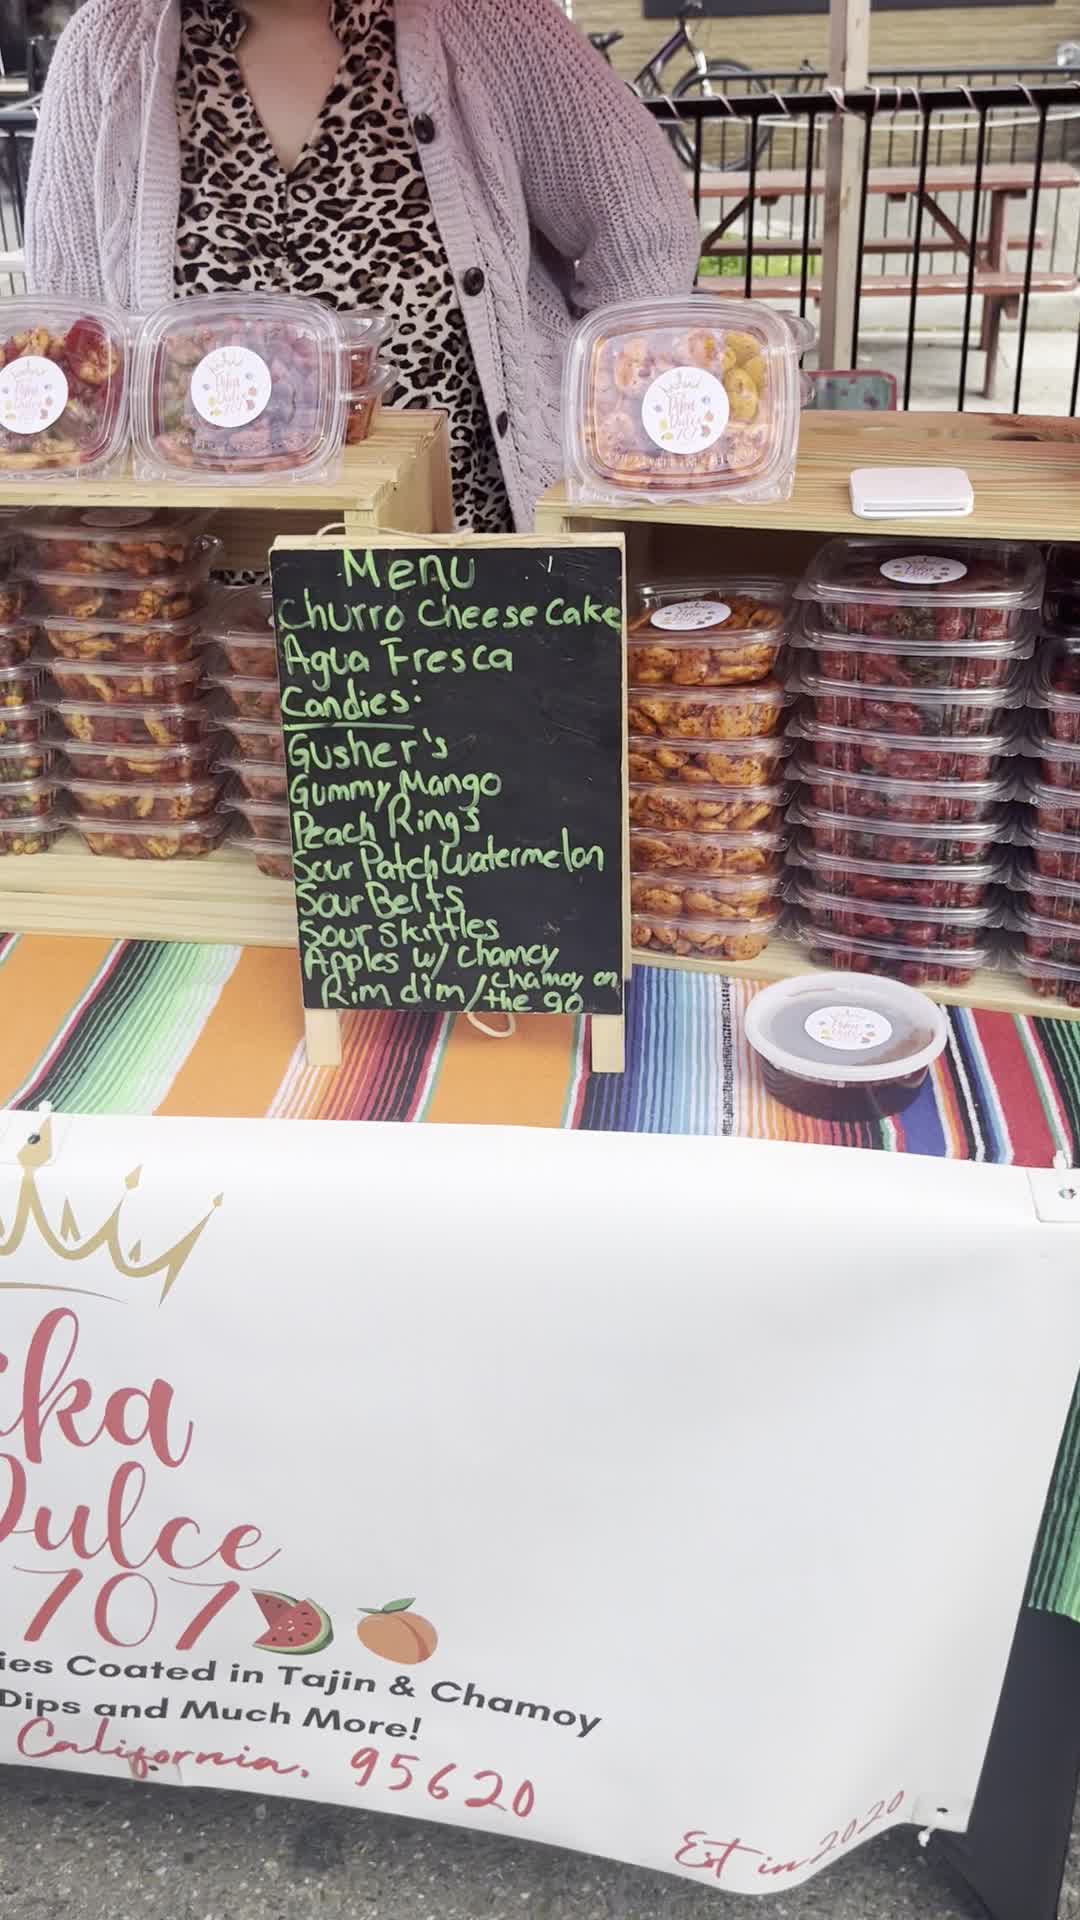 Menu
Churro Cheese Cake
Agua Fresca
Candies:
Gusher's
Gummy Mango
Peach Rings
Sour Patch Watermelon
Sour Belts
Sour Skittles
Apples w/ Chamoy
Rim dim/ Chamoy on the go
ka
Dulce
707
ies Coated in Tajin & Chamoy
Dips and Much More!
California, 95620
Est in 2020